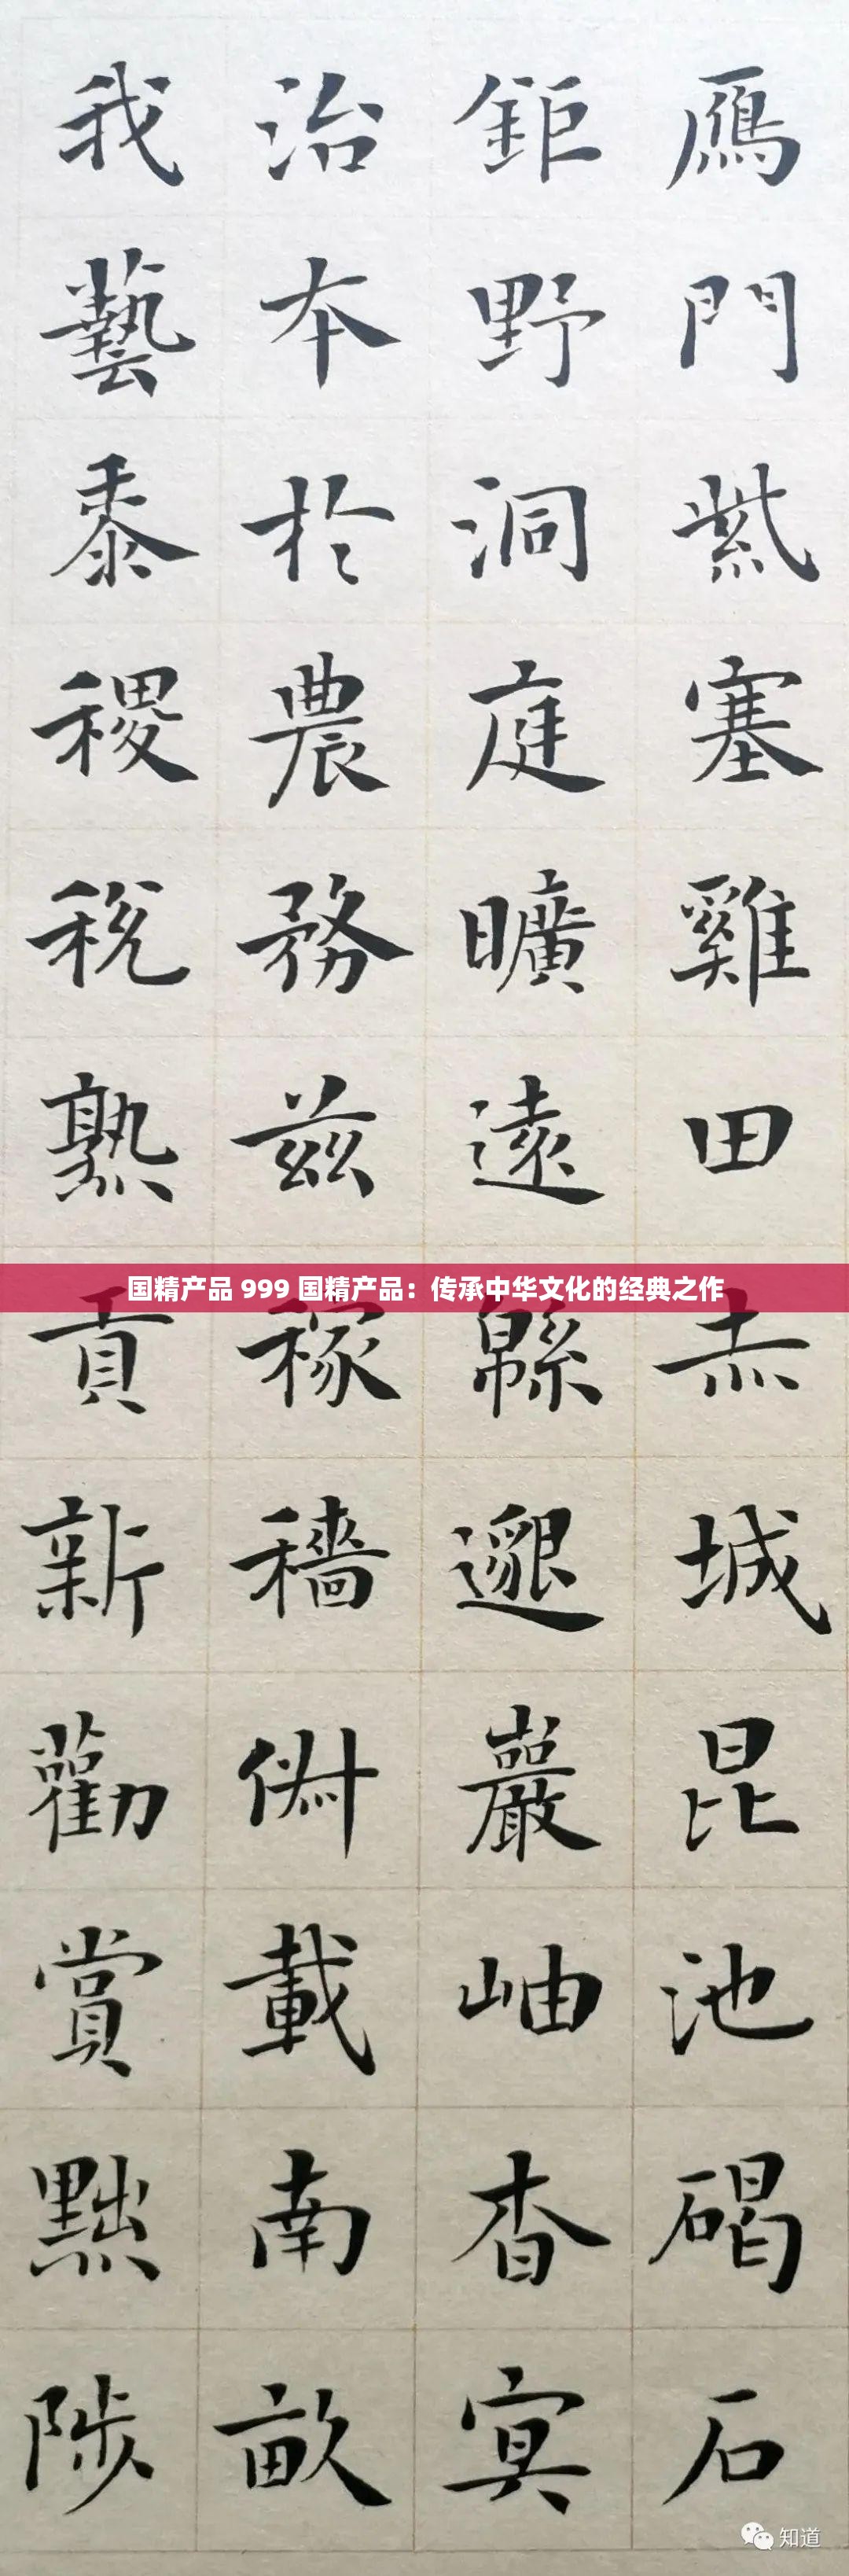 鴈門紫塞雞田赤城昆池碣石
鉅野洞庭曠遠緜邈巖岫杳冥
治本於農務兹稼穡俶載南畝
我藝黍稷稅熟貢新勸賞黜陟
国精产品 999 国精产品：传承中华文化的经典之作
知道